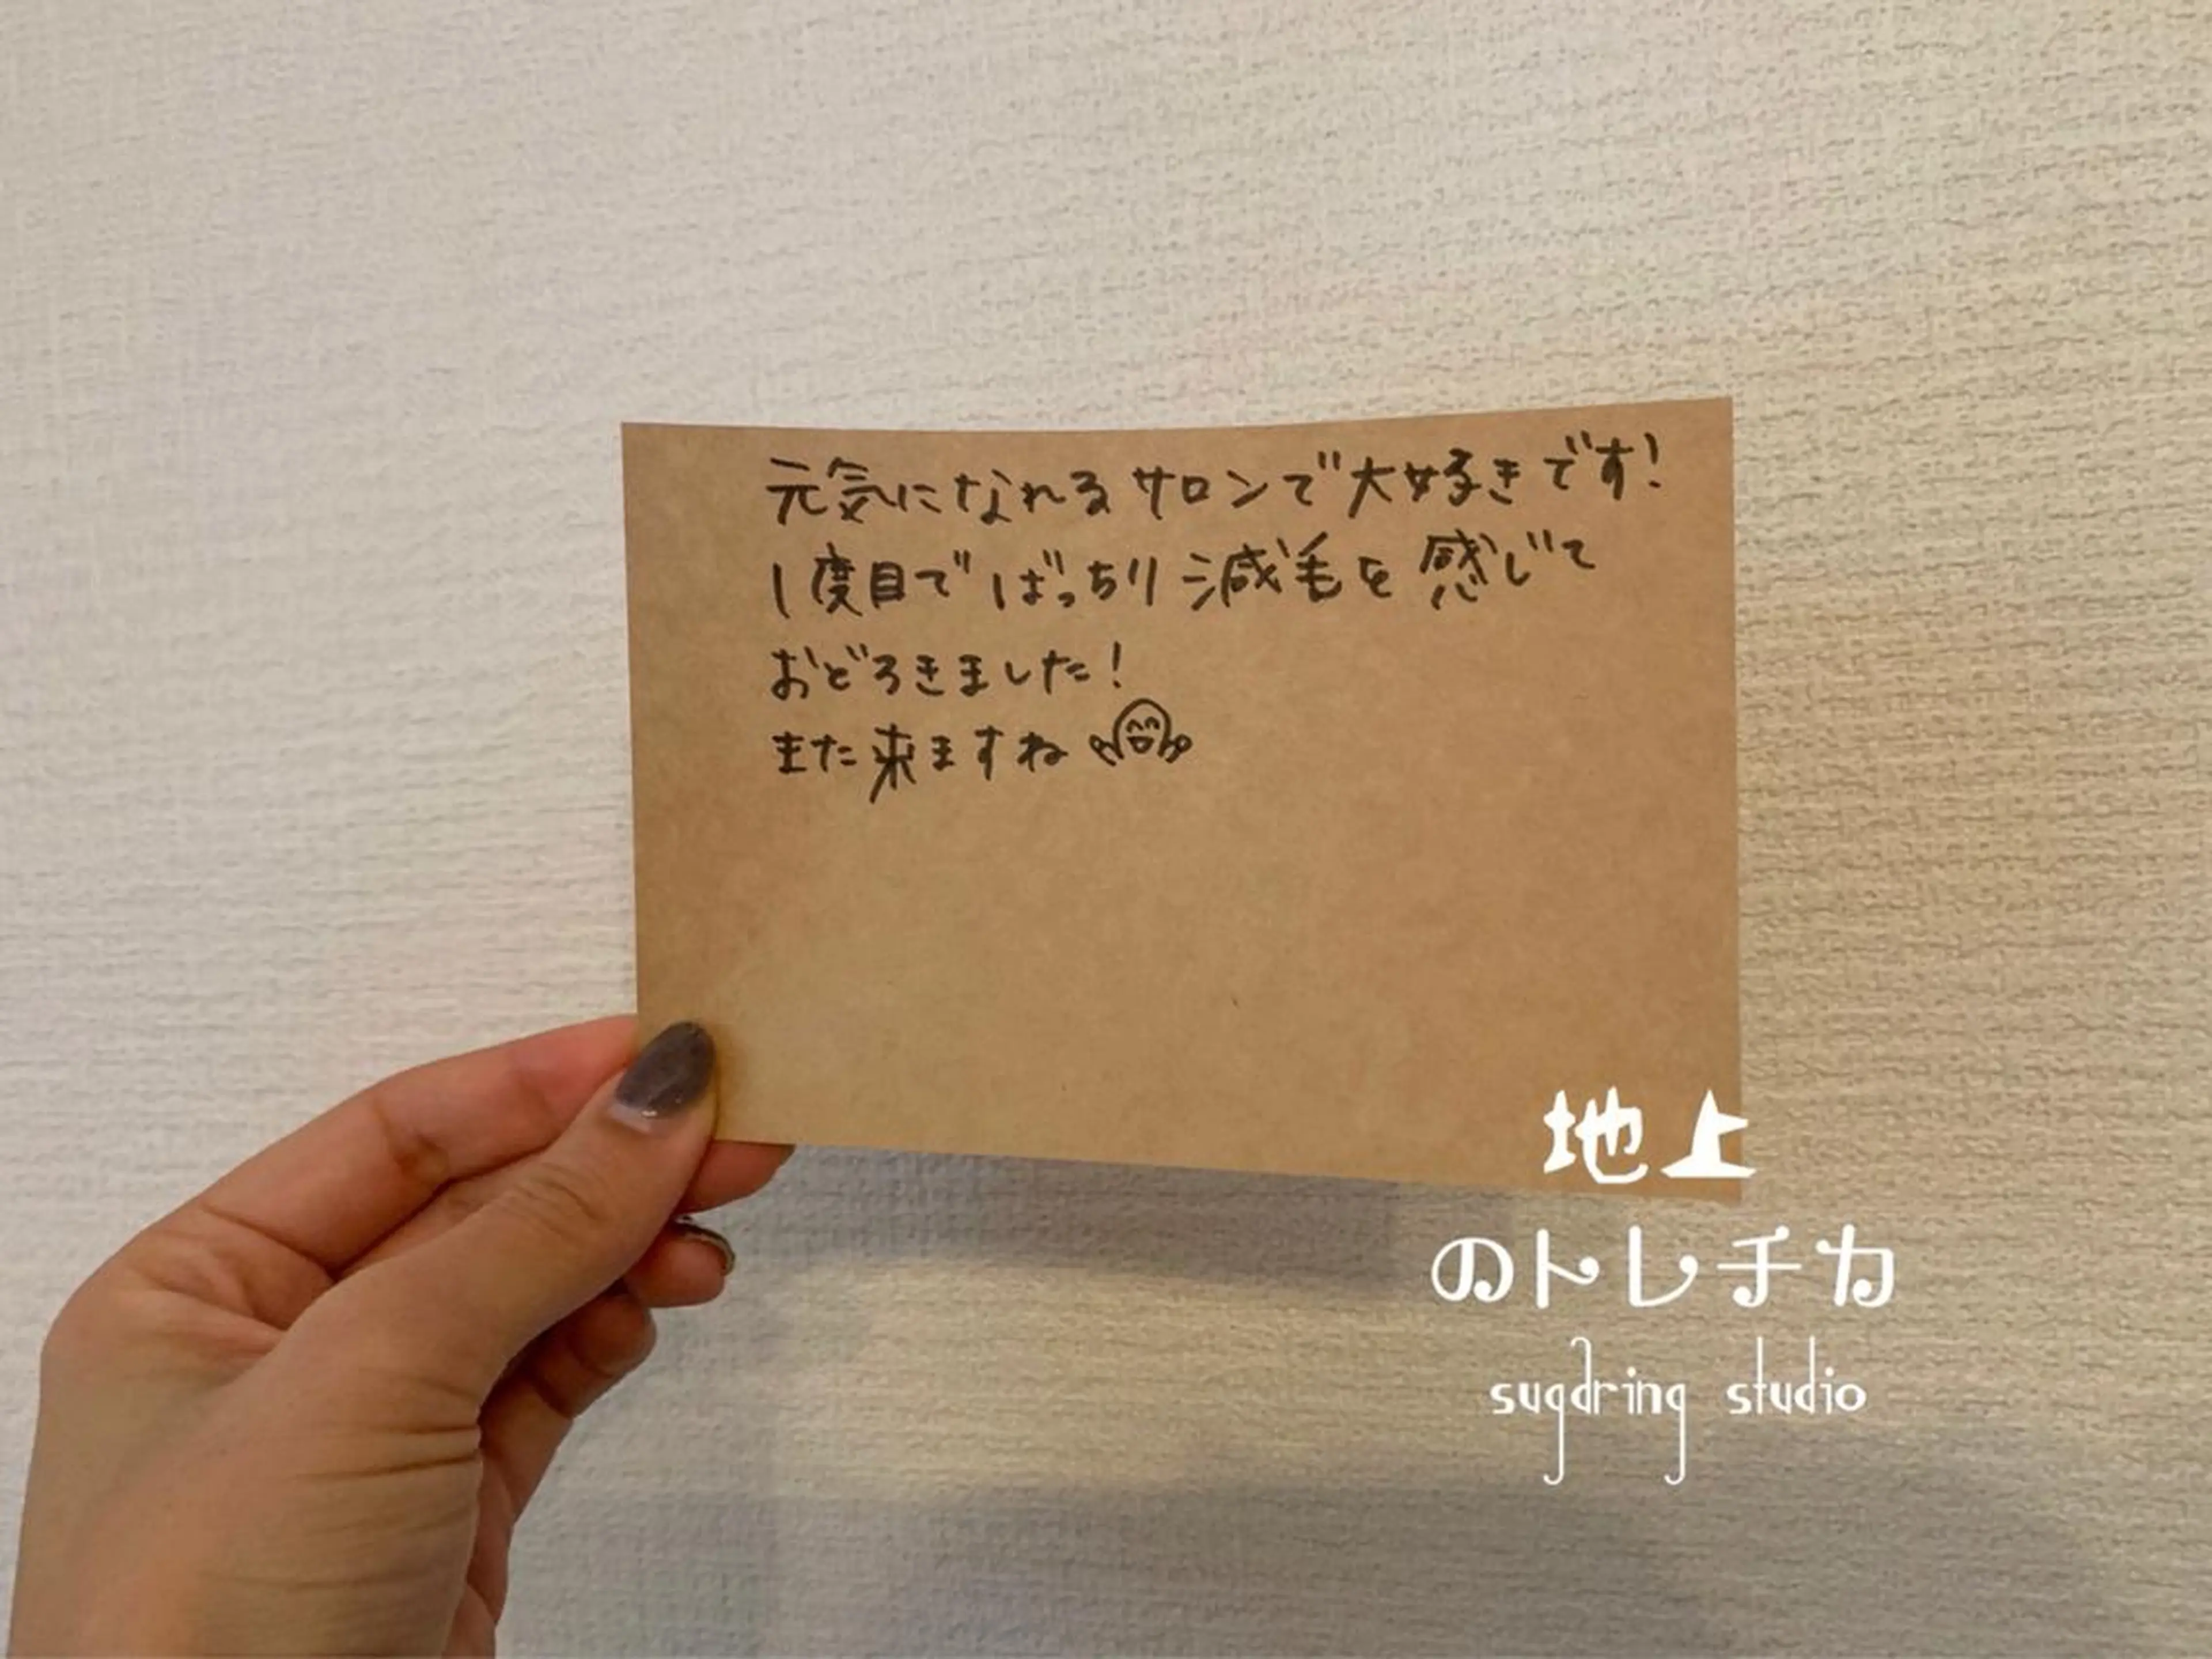 元気になれるサロンで大好きです!
1度目でばっちり減毛を感じて
おどろきました!
また来ますね
地上
のトレチカ
sugaring studio